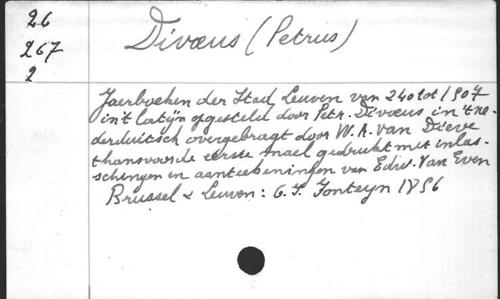 26
267
2
Divœus (Petrus)
Jaerboeken der Stad Leuven van 240 tot 1507
in't latijn opgesteld door Petr. Divœus in 't ne-
derduitsch overgebragt door W. A. Van Dieve
thans voor de eerste mael gedrukt met inlas-
schingen en aanteekeningen van Edw. Van Even
Brussel & Leuven: C. J. Fonteyn 1856